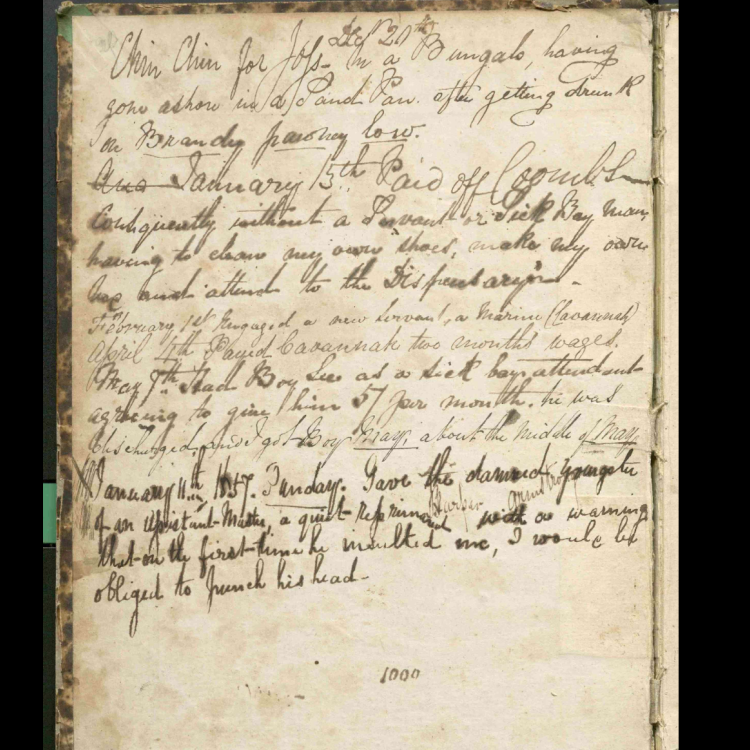 Chin Chin for Joss Dec 20th in a Bungalo, having
gone ashore in a Sand Pan. after getting drunk
on Brandy pawney low.
And January 15th Paid off Coombs
Consequently without a Servant or Sick Bay man,
having to clean my own shoes, make my own
and attend to the Dispensary.
February 1st Engaged a new Servant, a Marine (Cavannah)
April 4th Paid Cavannah two months wages.
May 7th Had Boy Lee as a sick bay attendant
agreeing to give him 5/ per month. he was
discharged, and I got Boy May, about the middle of May,
January 11th 1857. Sunday. Gave the damned youngster
of an assistant Master, a quiet reprimand with a warning
that on the first time he insulted me, I would be
obliged to punch his head.
1000